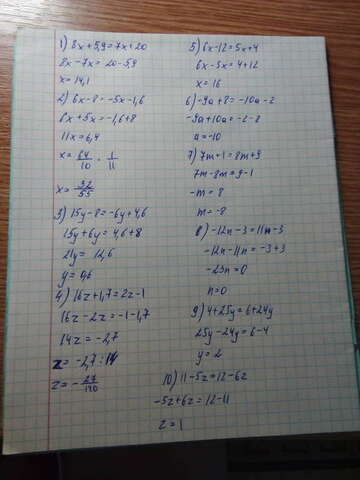 1) 8x+5,9=7x+20
8x-7x=20-5,9
x=14,1
2) 6x-8=-5x-1,6
6x+5x=-1,6+8
11x=6,4
x=64/10 · 1/11
x=32/55
3) 15y-8=-6y+4,6
15y+6y=4,6+8
21y=12,6
y=0,6
4) 16z+1,7=2z-1
16z-2z=-1-1,7
14z=-2,7
z=-2,7:14
z=-27/140
5) 6x-12=5x+4
6x-5x=4+12
x=16
6) -9a+8=-10a-2
-9a+10a=-2-8
a=-10
7) 7m+1=8m+9
7m-8m=9-1
-m=8
m=-8
8) -12n-3=11n-3
-12n-11n=-3+3
-23n=0
n=0
9) 4+25y=6+24y
25y-24y=6-4
y=2
10) 11-5z=12-6z
-5z+6z=12-11
z=1